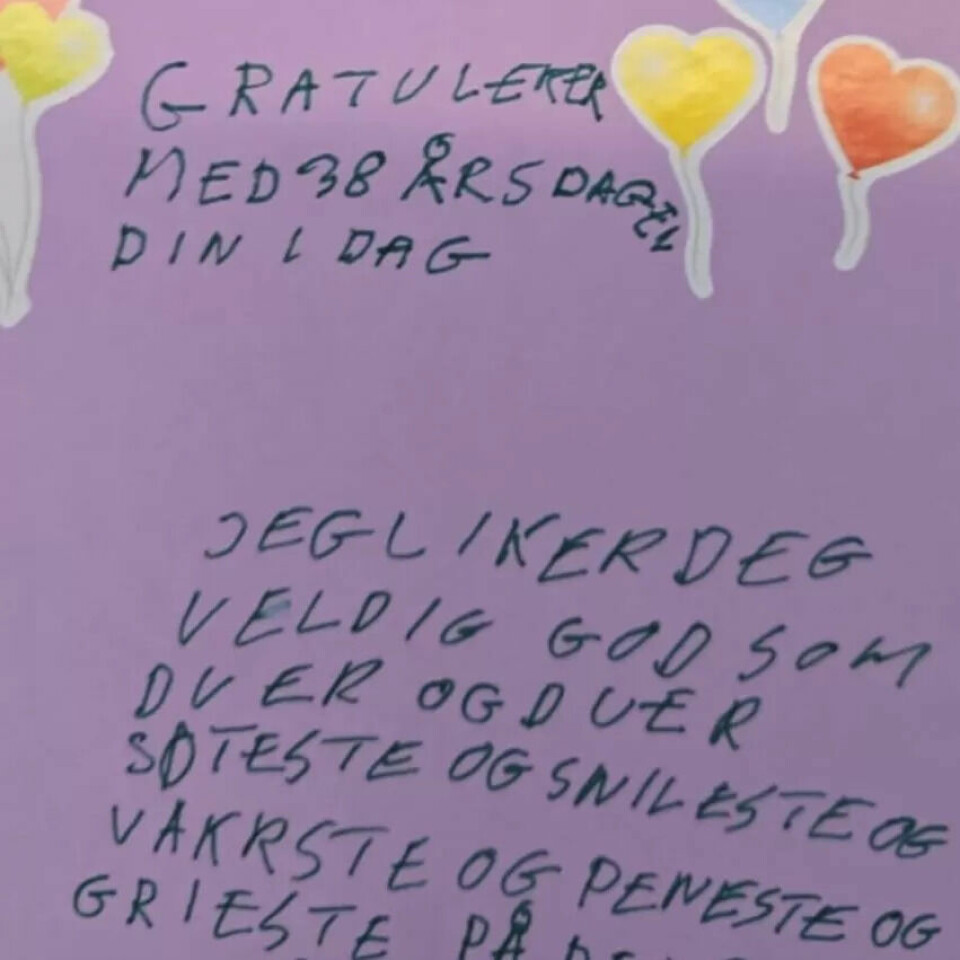 GRATULERER
MED 38 ÅRSDAGEN
DIN I DAG
JEG LIKER DEG
VELDIG GOD SOM
DU ER OG DU ER
SØTESTE OG SNILESTE OG
VAKRSTE OG PENESTE OG
GRIESTE PÅ